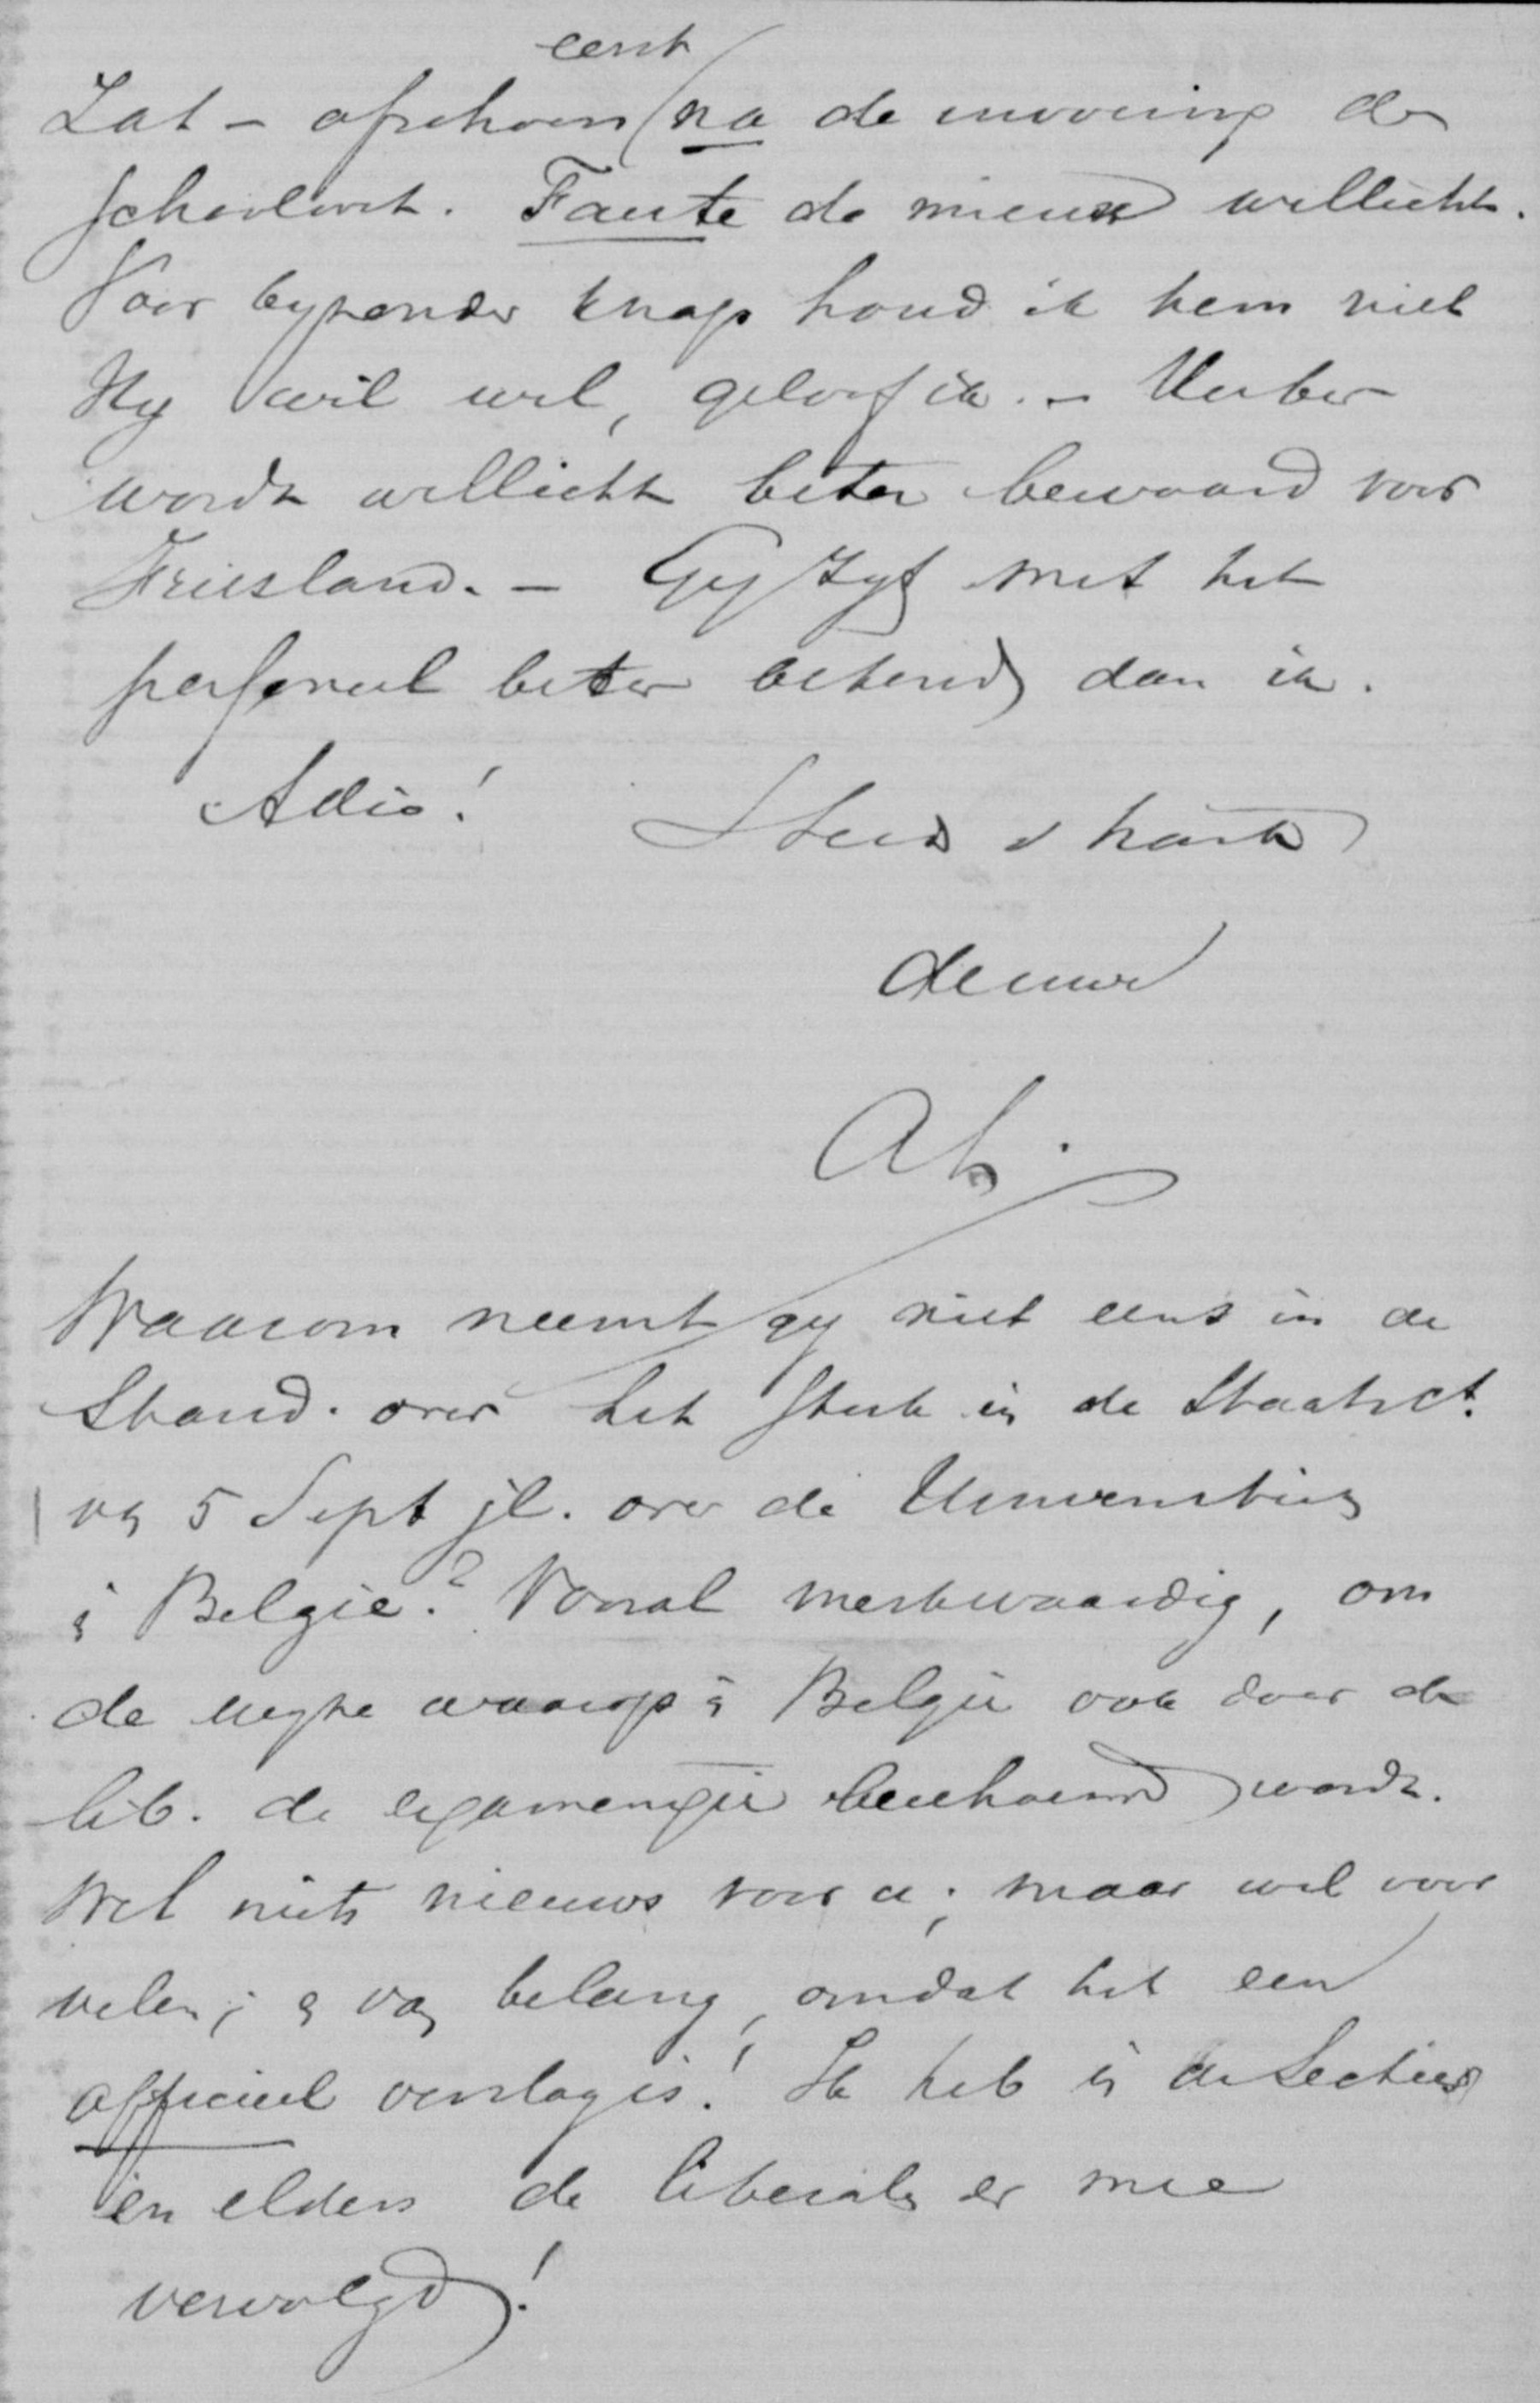 eerst
Zat – ofschoon na de invoering der
schoolwet. Faute de mieux wellicht.
Voor byzonder knap houd ik hem niet
Hy wil wel, geloof ik. – Verber
wordt wellicht beter bewaard voor
Friesland. – Gy zyt met het
personeel beter bekend dan ik.
Adio! Steeds v harte
de uwe
Waarom neemt gy niet eens in de
Stand. over het stuk in de Staatsct.
vn 5 Sept jl. over de Universiteiten
in Belgie? Vooral merkwaardig, om
de wyze waarop in Belgie ook door de
lib. de examengie beschouwd wordt.
Wel niets nieuws voor u; maar wel voor
velen; en van belang, omdat het een
officieel verslag is! Ik heb in de Sectien
en elders de liberalen er mee
vervolgd!